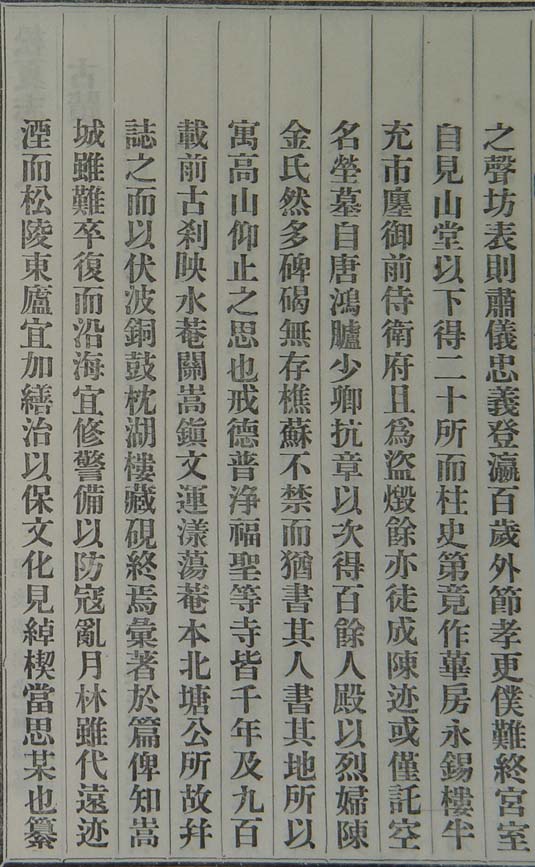 之聲坊表則肅儀忠義登瀛百歲外節孝更僕難終宮室
自見山堂以下得二十所而柱史第竟作華房永錫樓半
充市廛御前侍衛府且爲盜燬餘亦徒成陳迹或僅託空
名塋墓自唐鴻臚少卿抗章以次得百餘人殿以烈婦陳
金氏然多碑碣無存樵蘇不禁而猶書其人書其地所以
寓高山仰止之思也戒德普淨福聖等寺皆千年及九百
載前古刹映水菴關嵩鎮文運漾蕩菴本北塘公所故幷
誌之而以伏波銅鼓枕湖樓藏硯終焉彙著於篇俾知嵩
城雖難卒復而沿海宜修警備以防寇亂月林雖代遠迹
湮而松陵東廬宜加繕治以保文化見綽楔當思某也纂